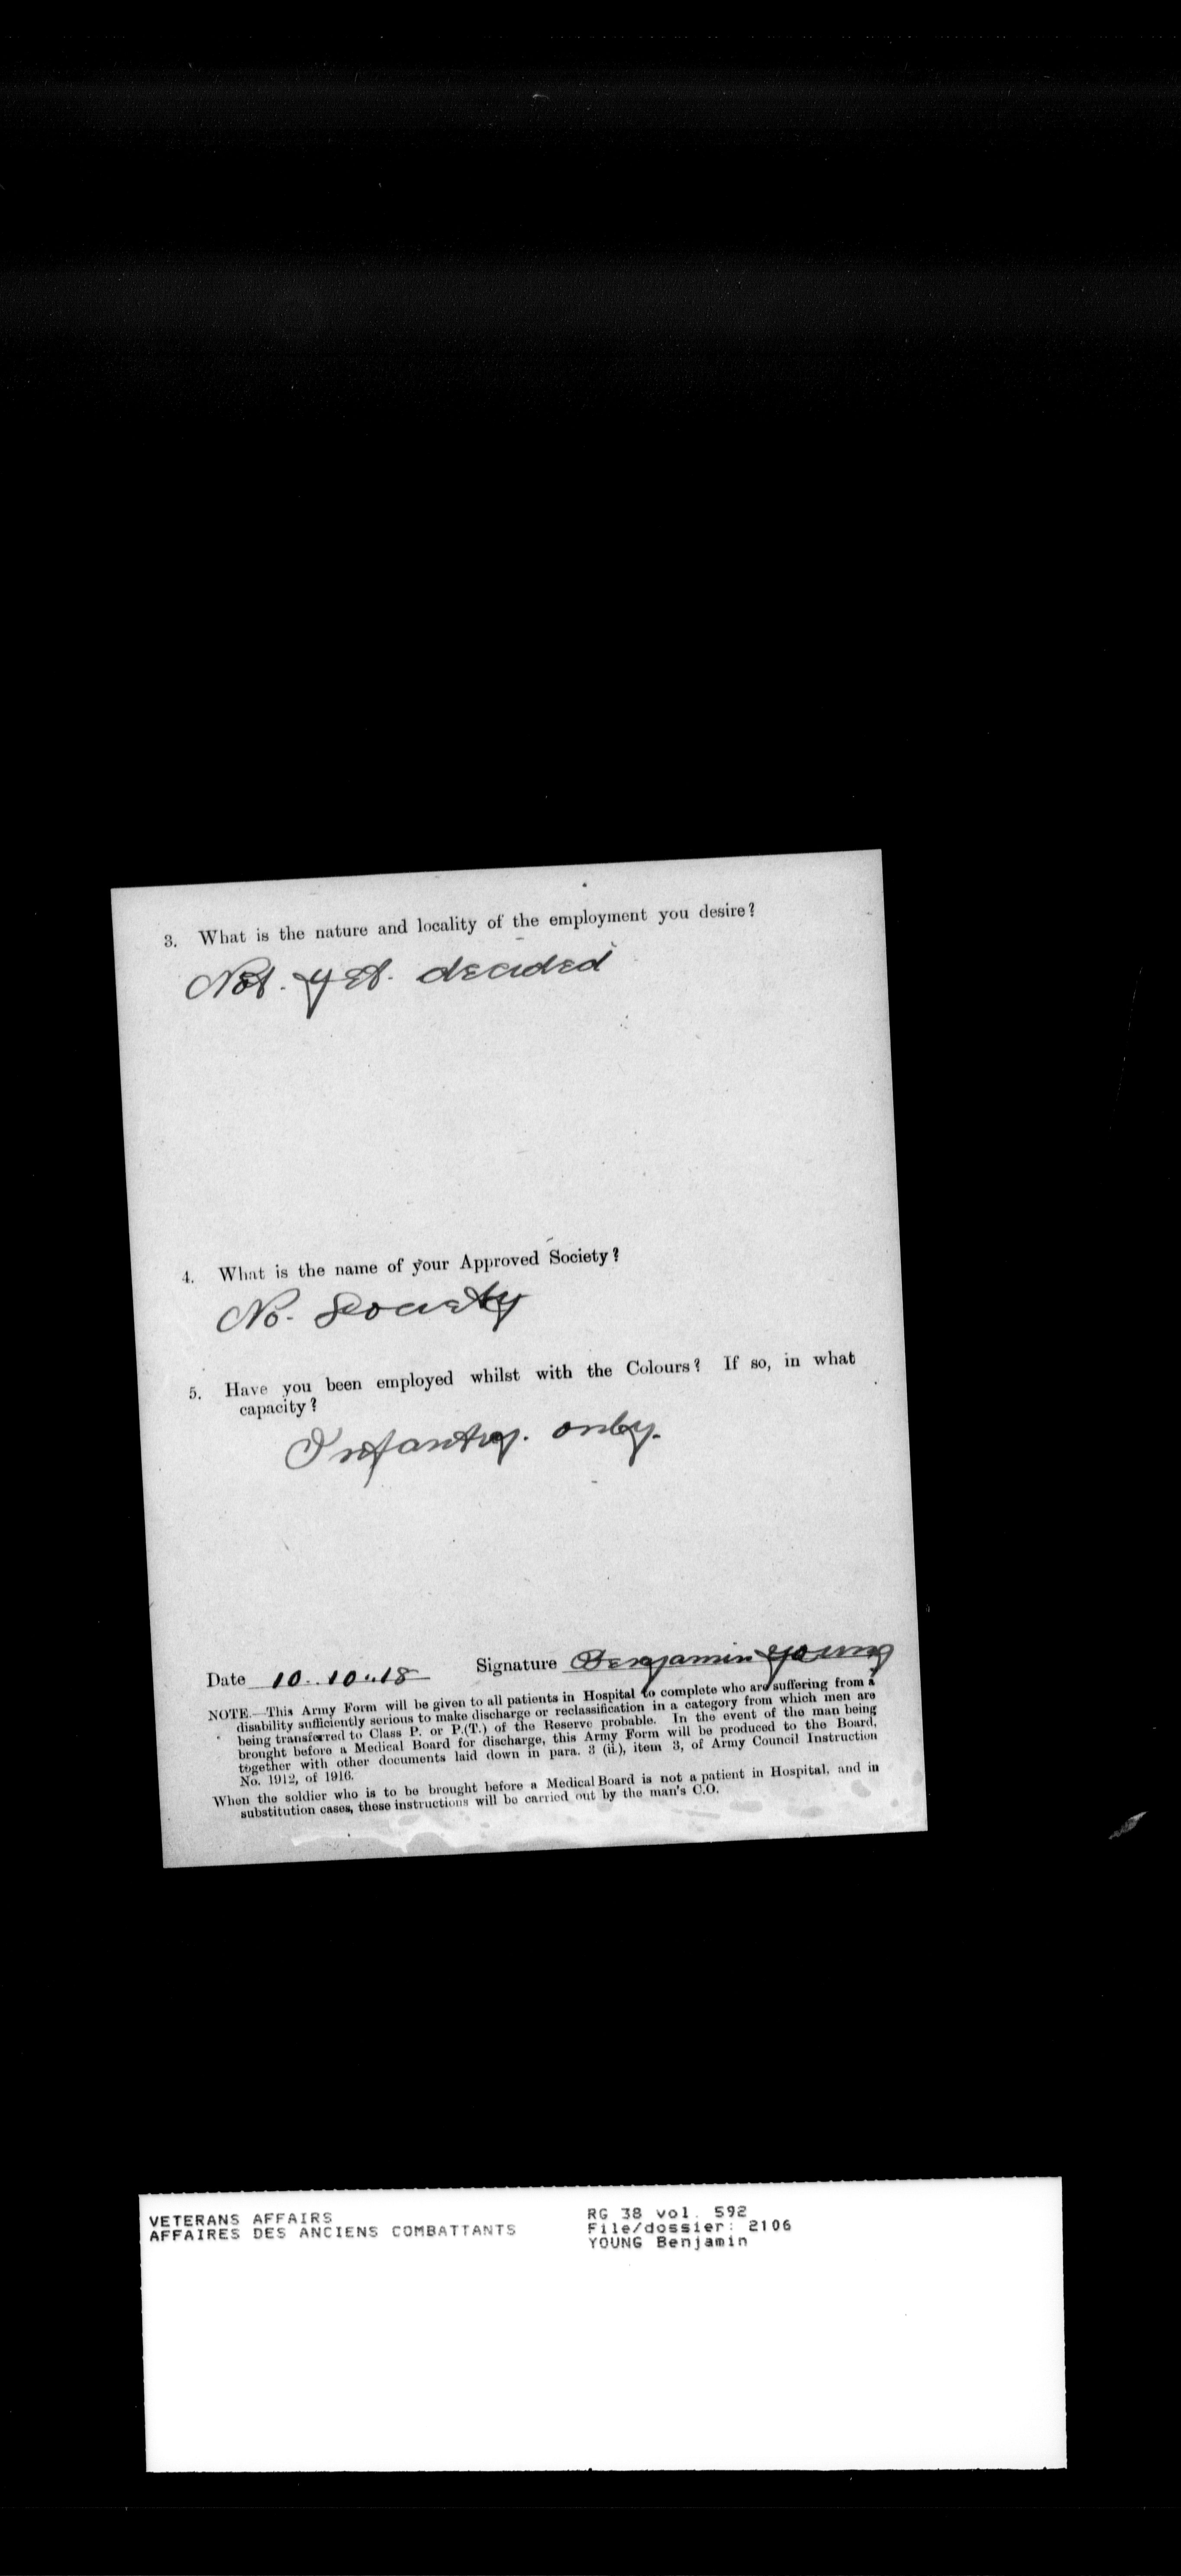 3. What is the nature and locality of the employment you desire?
Not. yet. decided
4. What is the name of your Approved Society?
No. Society
5. Have you been employed whilst with the Colours? If so, in what
capacity?
Infantry. only.
Date 10..10..18 Signature Benjamin Young
NOTE.—This Army Form will be given to all patients in Hospital to complete who are suffering from a
disability sufficiently serious to make discharge or reclassification in a category from which men are
being transferred to Class P. or P.(T.) of the Reserve probable. In the event of the man being
brought before a Medical Board for discharge, this Army Form will be produced to the Board,
together with other documents laid down in para. 3 (ii.), item 3, of Army Council Instruction
No. 1912, of 1916.
When the soldier who is to be brought before a Medical Board is not a patient in Hospital, and in
substitution cases, these instructions will be carried out by the man's C.O.
VETERANS AFFAIRS
AFFAIRES DES ANCIENS COMBATTANTS
RG 38 vol. 592
File/dossier: 2106
YOUNG Benjamin